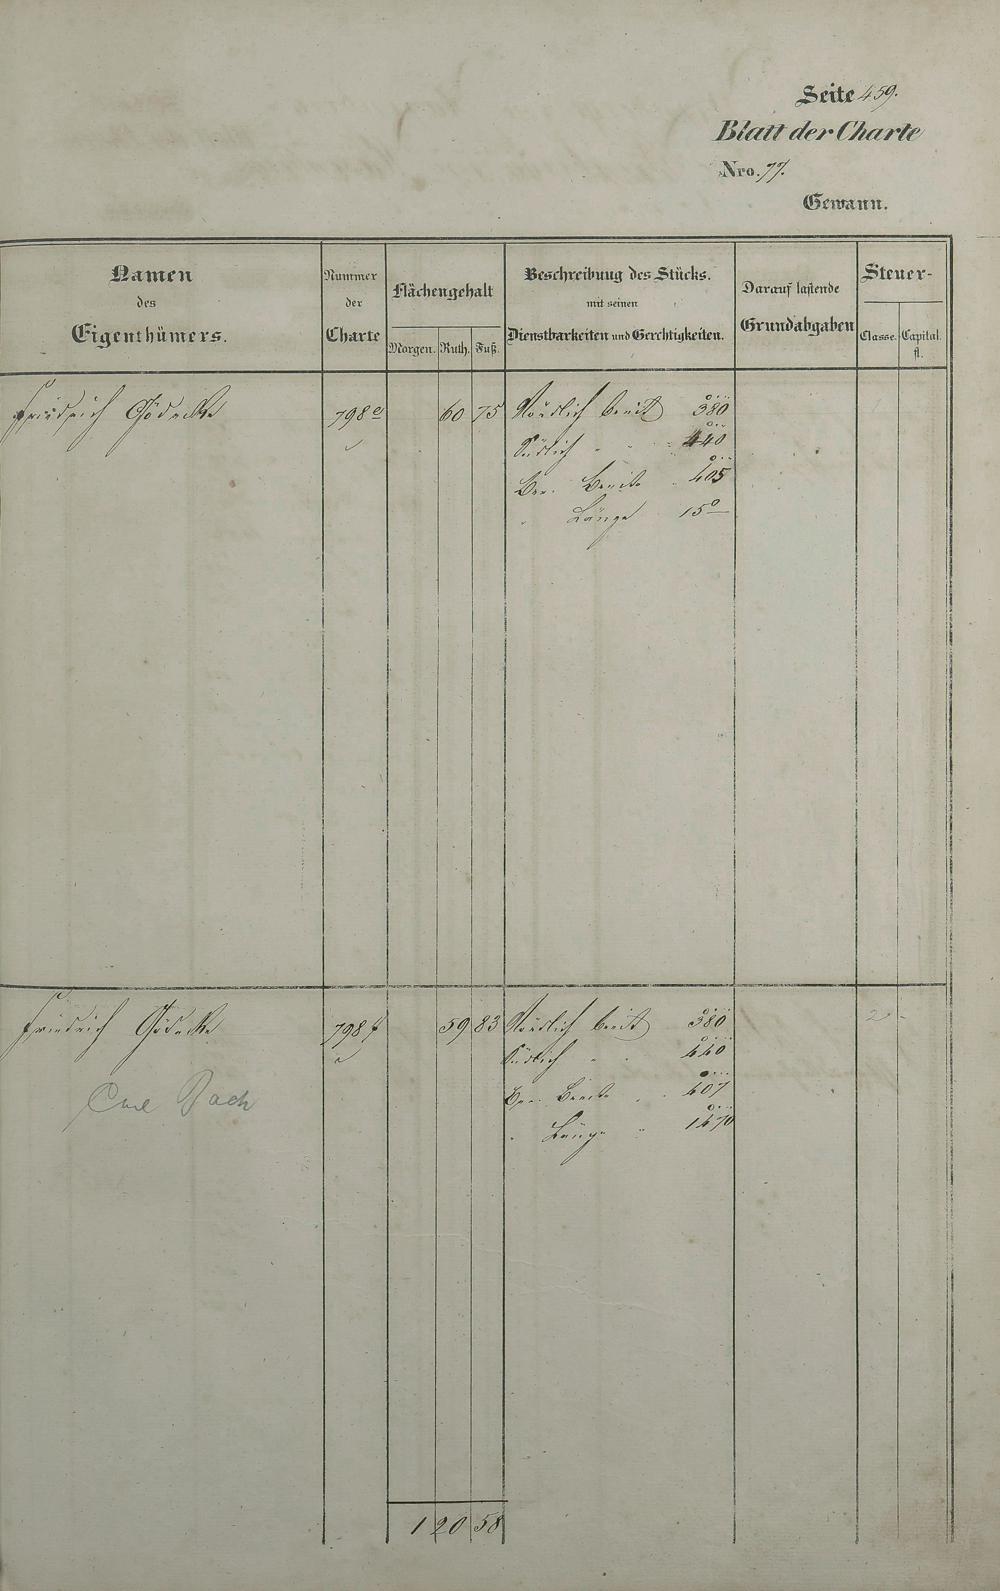 Seite 459.
Blatt der Charte
Nro. 77.
Gewann.
Namen
des
Eigenthümers.
Nummer
der
Charte
Flächengehalt
Morgen. Ruth. Fuß.
Beschreibung des Stücks.
mit seinen
Dienstbarkeiten und Gerechtigkeiten.
Darauf lastende
Grundabgaben
Steuer-
Classe. Capital.
fl.
Friedrich Gödecke 798e 60 75 Nördlich breit 380
Südlich " " 440
Ber. Breite " 405
" Länge 15° —
Friedrich Gödecke 798f 59 83 Nördlich breit 380
Südlich " " 440
Ber. Breite " 407
" Länge " 1470
Carl Bach
1 20 58